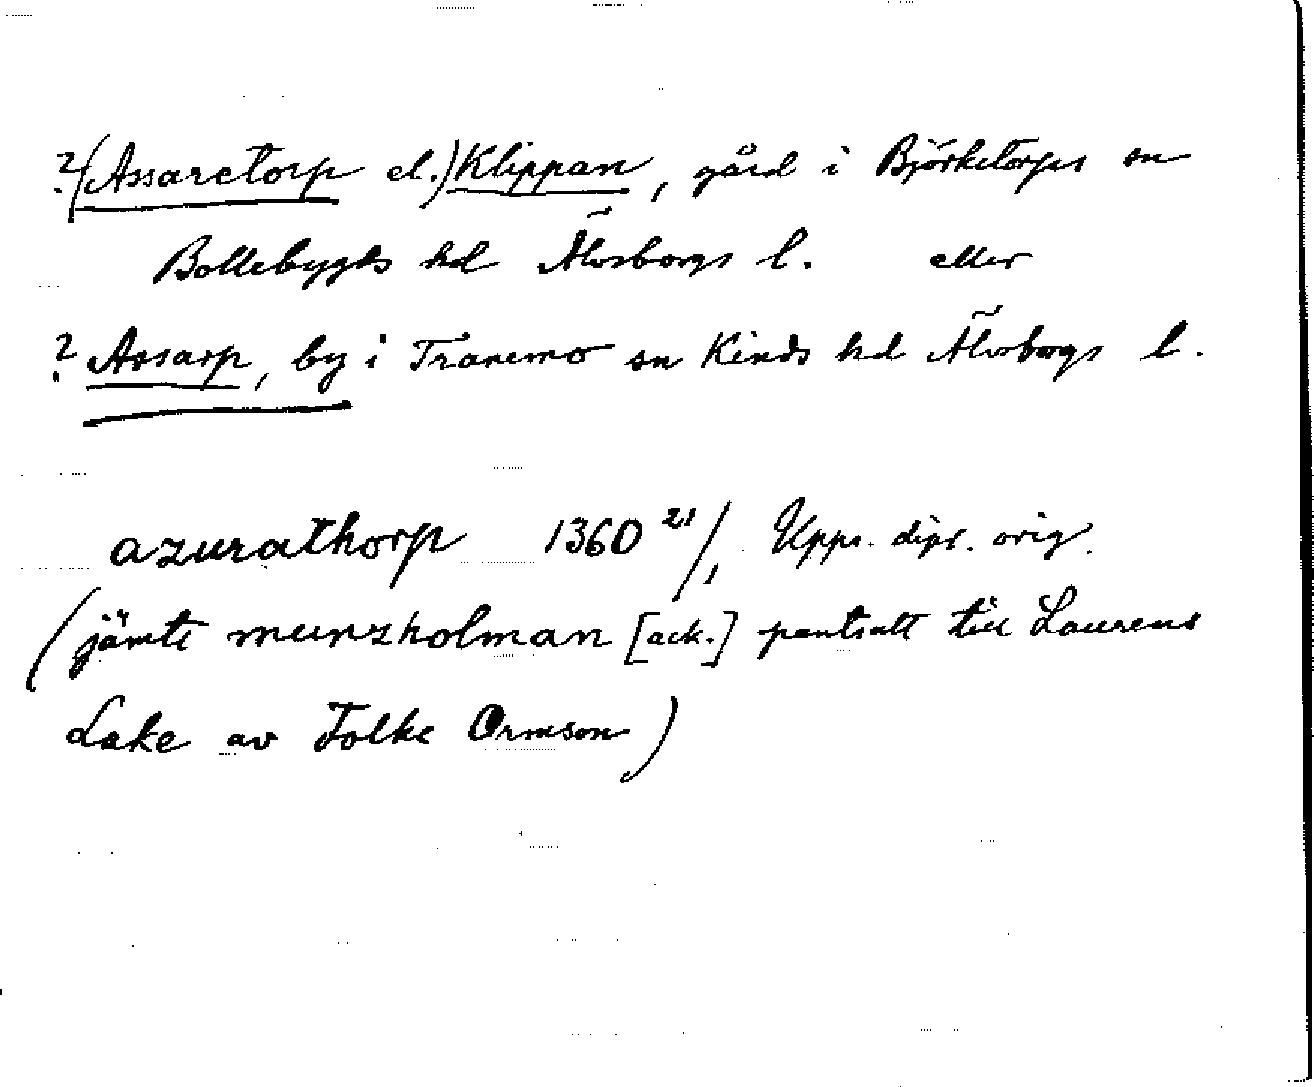 ?(Assaretorp el.) Klippan, gård i Björketorps sn
Bollebygds hd Älvsborgs l. eller
? Assarp, by i Tranemo sn Kinds hd Älvsborgs l.
azurathorp 1360 21/1 Upps. dipl. orig.
(jämte munzholman [ack.] pantsatt till Laurens
Lake av Folke Ormson)